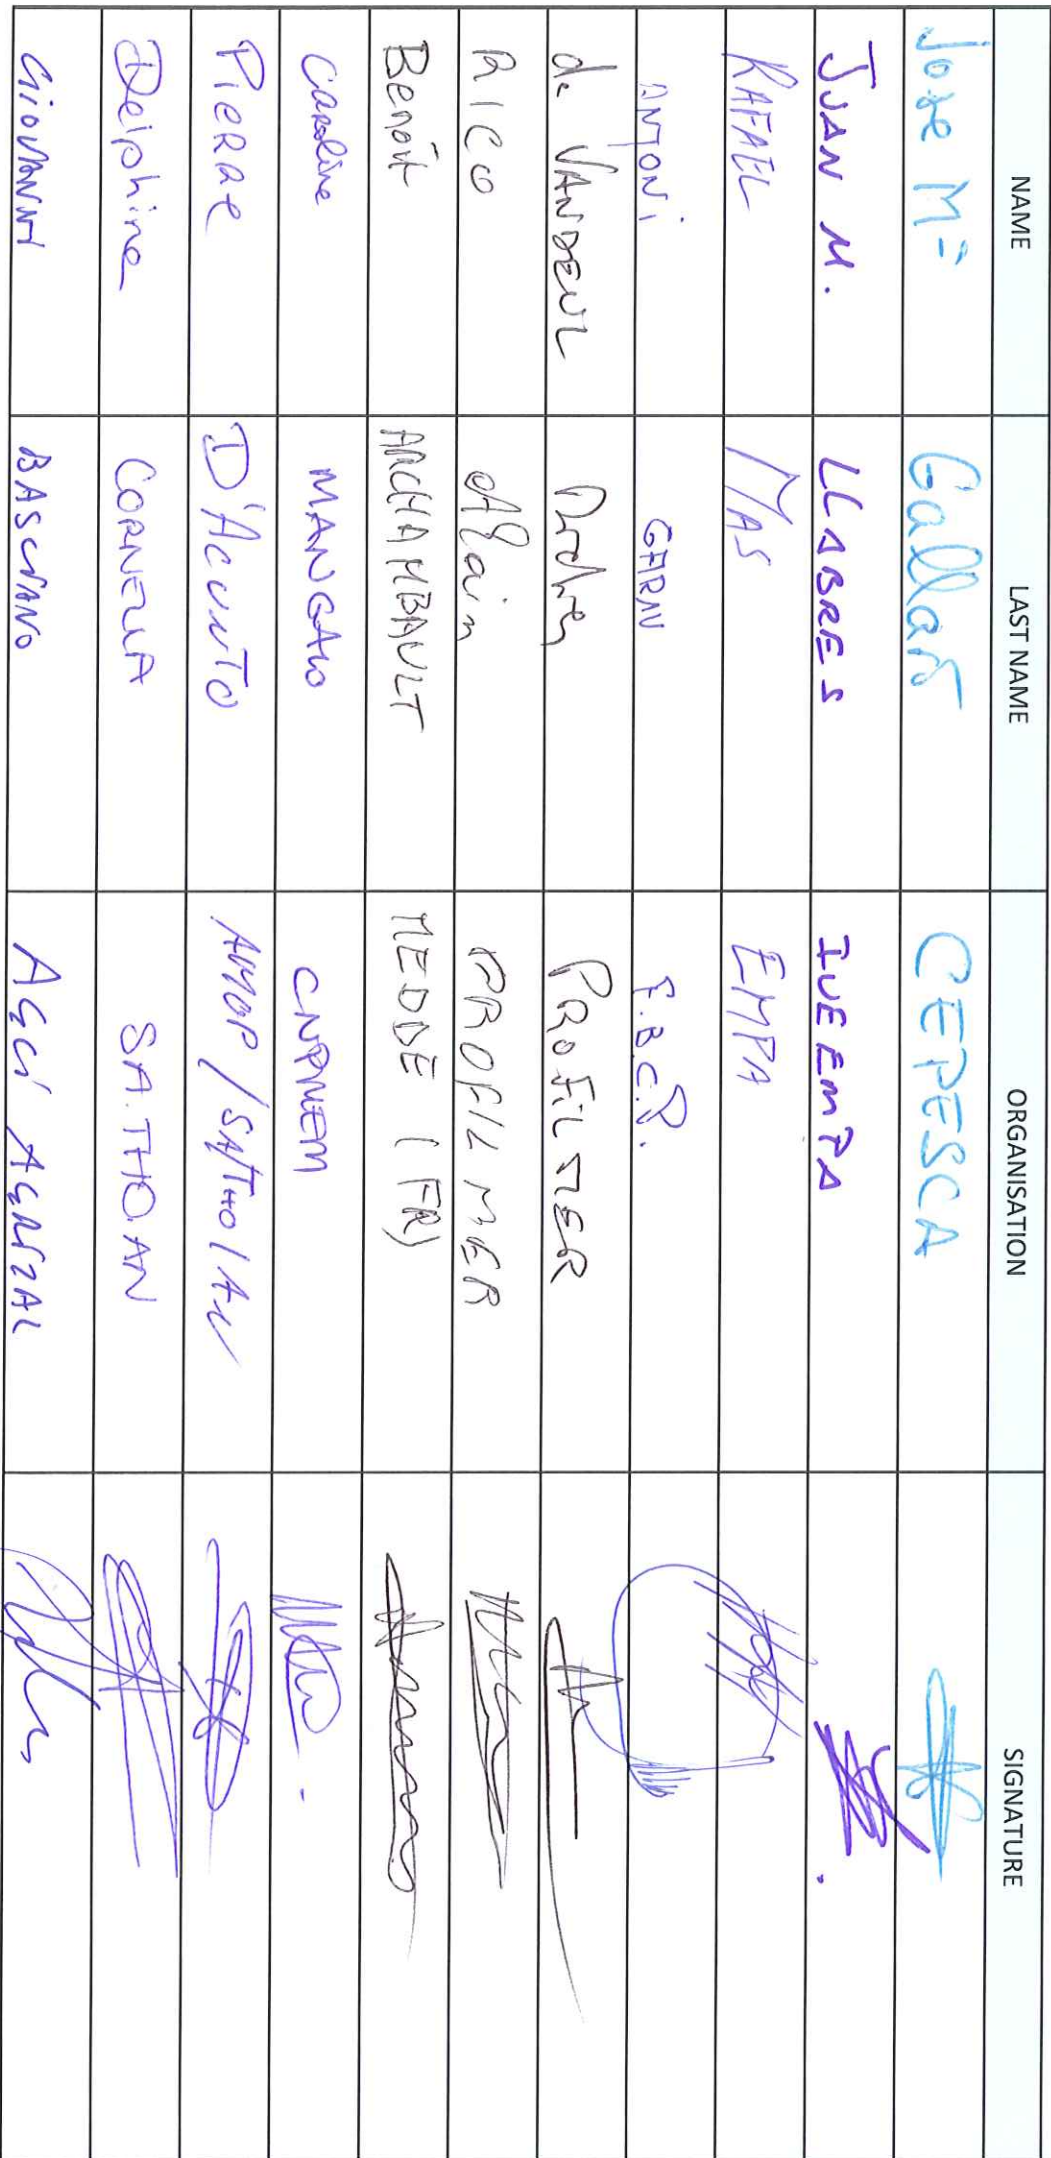 NAME LAST NAME ORGANISATION SIGNATURE
Jose Mª Gallart CEPESCA
JUAN M. LLABRES IVEEMPA
RAFAEL MAS EMPA
ANTONI GARAU F.B.C.P.
de VANDEUL PROFILMER
RICO Alain PROFIL MER
Benoît ARCHAMBAULT MEDDE (FR)
Caroline MANGALO CNPMEM
PIERRE D'ACUNTO AMOP / SATHOAN
Delphine CORNELLA SA.THO.AN
GIOVANNI BASCIANO AGCI AGRITAL